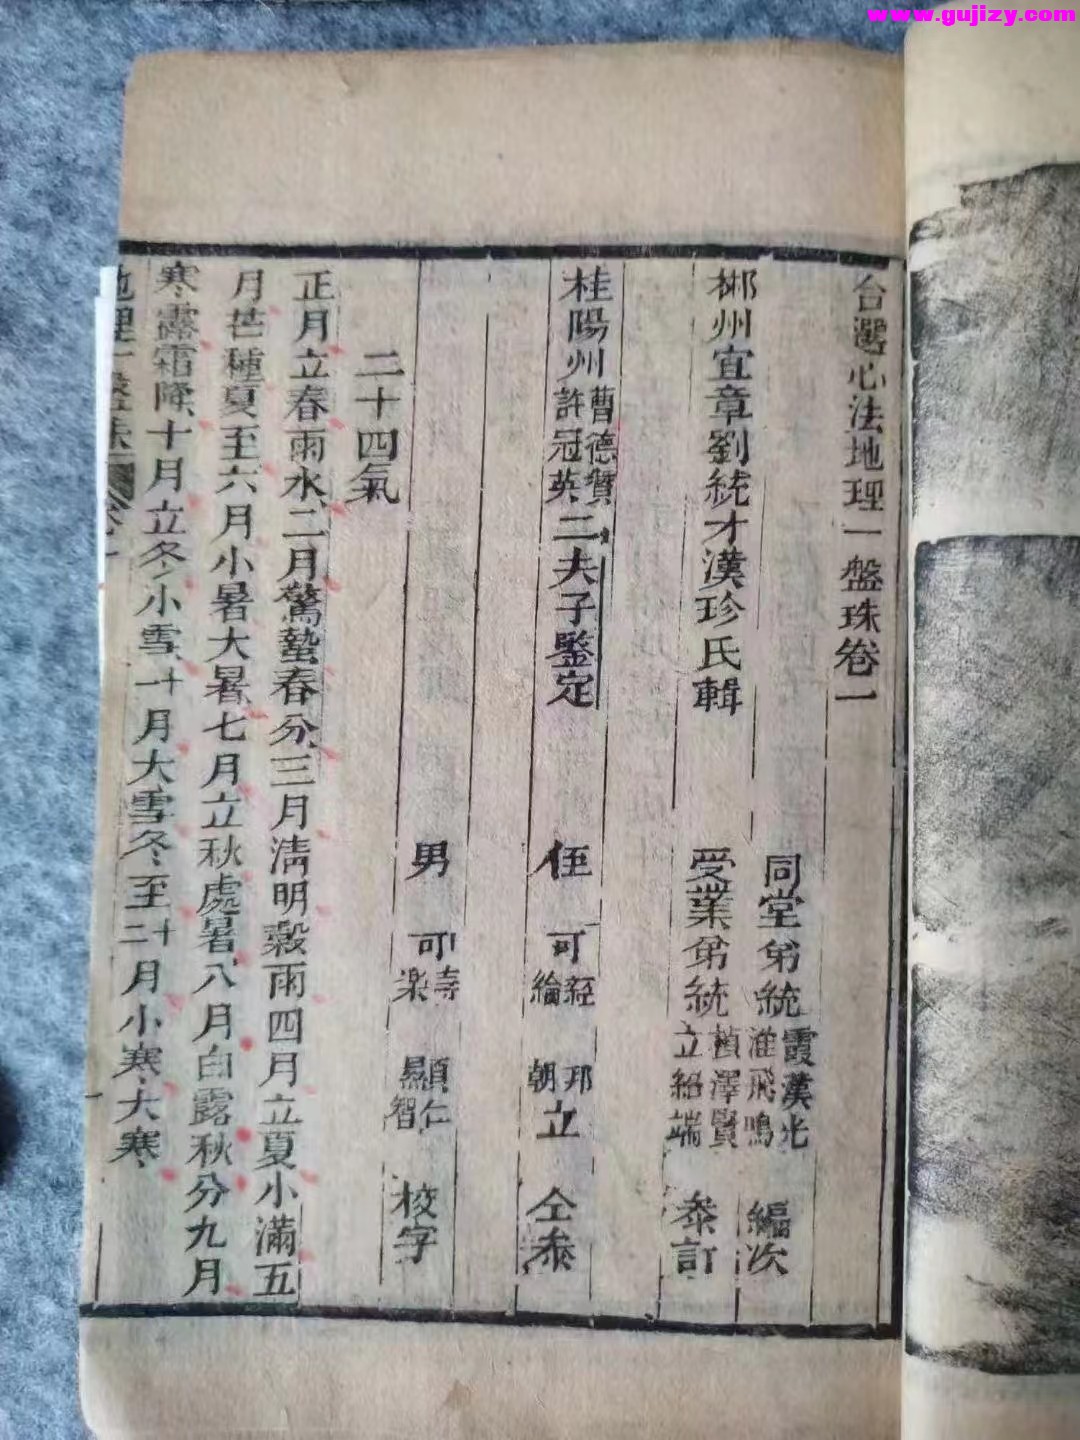 www.gujizy.com
台選心法地理一盤珠卷一
同堂弟統霞漢光
淮飛鳴
編次
郴州宜章劉統才漢珍氏輯
受業弟統楨澤賢
立紹端
叅訂
桂陽州曹德贊
許冠英
二夫子鑒定
侄可經
綸
邦
朝
立仝叅
男可壽
楽
顯仁
智
校字
二十四氣
正月立春雨水二月驚蟄春分三月淸明穀雨四月立夏小滿五
月芒種夏至六月小暑大暑七月立秋處暑八月白露秋分九月
寒露霜降十月立冬小雪十一月大雪冬至十二月小寒大寒
地理一盤珠 卷一